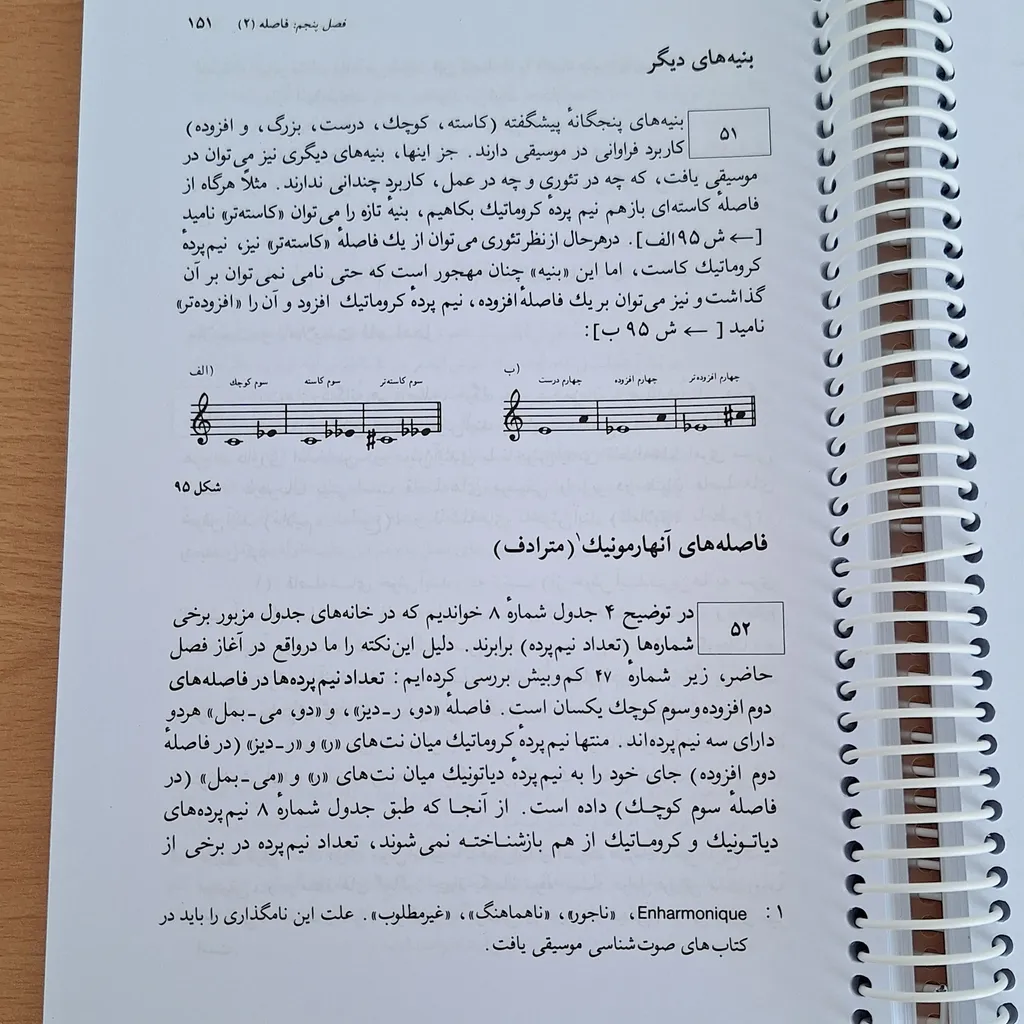 فصل پنجم: فاصله (۲) ۱۵۱
بنیه‌های دیگر
۵۱
بنیه‌های پنجگانهٔ پیشگفته (کاسته، کوچك، درست، بزرگ، و افزوده)
کاربرد فراوانی در موسیقی دارند. جز اینها، بنیه‌های دیگری نیز می‌توان در
موسیقی یافت، که چه در تئوری و چه در عمل، کاربرد چندانی ندارند. مثلاً هرگاه از
فاصلهٔ کاسته‌ای بازهم نیم پردهٔ کروماتیك بکاهیم، بنیهٔ تازه را می‌توان «کاسته‌تر» نامید
[← ش ۹۵ الف]. درهرحال ازنظر تئوری می‌توان از یك فاصلهٔ «کاسته‌تر» نیز، نیم‌پردهٔ
کروماتیك کاست، اما این «بنیه» چنان مهجور است که حتی نامی نمی‌توان بر آن
گذاشت و نیز می‌توان بر یك فاصلهٔ افزوده، نیم پردهٔ کروماتیك افزود و آن را «افزوده‌تر»
نامید [ ← ش ۹۵ ب]:
الف)
سوم کوچك سوم کاسته سوم کاسته‌تر
ب)
چهارم درست چهارم افزوده چهارم افزوده‌تر
شکل ۹۵
فاصله‌های آنهارمونیك۱ (مترادف)
۵۲
در توضیح ۴ جدول شمارهٔ ۸ خواندیم که در خانه‌های جدول مزبور برخی
شماره‌ها (تعداد نیم‌پرده) برابرند. دلیل این‌نکته را ما درواقع در آغاز فصل
حاضر، زیر شمارهٔ ۴۷ کم‌وبیش بررسی کرده‌ایم: تعداد نیم‌پرده‌ها در فاصله‌های
دوم افزوده و سوم کوچك یکسان است. فاصلهٔ «دو، ر-دیز»، و «دو، می-بمل» هردو
دارای سه نیم‌پرده‌اند. منتها نیم‌پردهٔ کروماتیك میان نت‌های «ر» و «ر-دیز» (در فاصلهٔ
دوم افزوده) جای خود را به نیم‌پردهٔ دیاتونیك میان نت‌های «ر» و «می-بمل» (در
فاصلهٔ سوم کوچـك) داده است. از آنجـا که طبق جدول شمارهٔ ۸ نیم‌پرده‌های
دیاتـونیك و کرومـاتیك از هم بازشنـاختـه نمی‌شوند، تعداد نیم‌پرده در برخی از
۱: Enharmonique، «ناجور»، «ناهماهنگ»، «غیرمطلوب». علت این نامگذاری را باید در
کتاب‌های صوت‌شناسی موسیقی یافت.